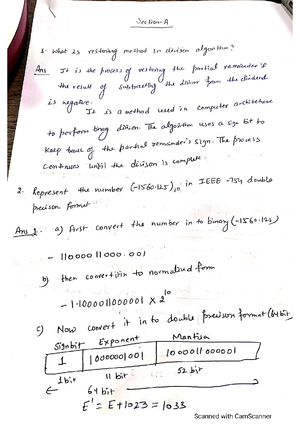 Section-A
1. What is restoring method in divison algorithm?
Ans It is the process of restoring the partial remainder if
the result of subtracting the divisor from the dividend
is negative.
It is a method used in computer architecture
to perform binary division. The algorithm uses a sign bit to
keep track of the partial remainder's sign. The process
continues until the divison is complete.
2. Represent the number (-1560.125)10 in IEEE -754 double
precison format
Ans 2. a) first convert the number in to binary (-1560.125)
- 11000011000.001
b) then convert it in to normalized form
- 1.1000011000001 X 2^10
c) Now convert it in to double precision format (64 bit)
Sign bit Exponent Mantissa
1 10000001001 1000011000001
1 bit 11 bit 52 bit
64 bit
E' = E+1023 = 1033
Scanned with CamScanner